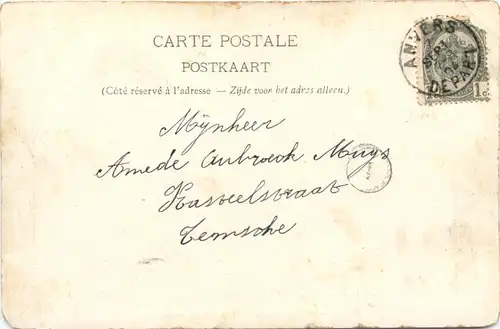 CARTE POSTALE
POSTKAART
(Côté réservé à l'adresse — Zijde voor het adres alleen.)
ANVERS
DEPART
1c.
Mÿnheer
Amede Aubroeck Muys
Kasteelstraat
Temsche